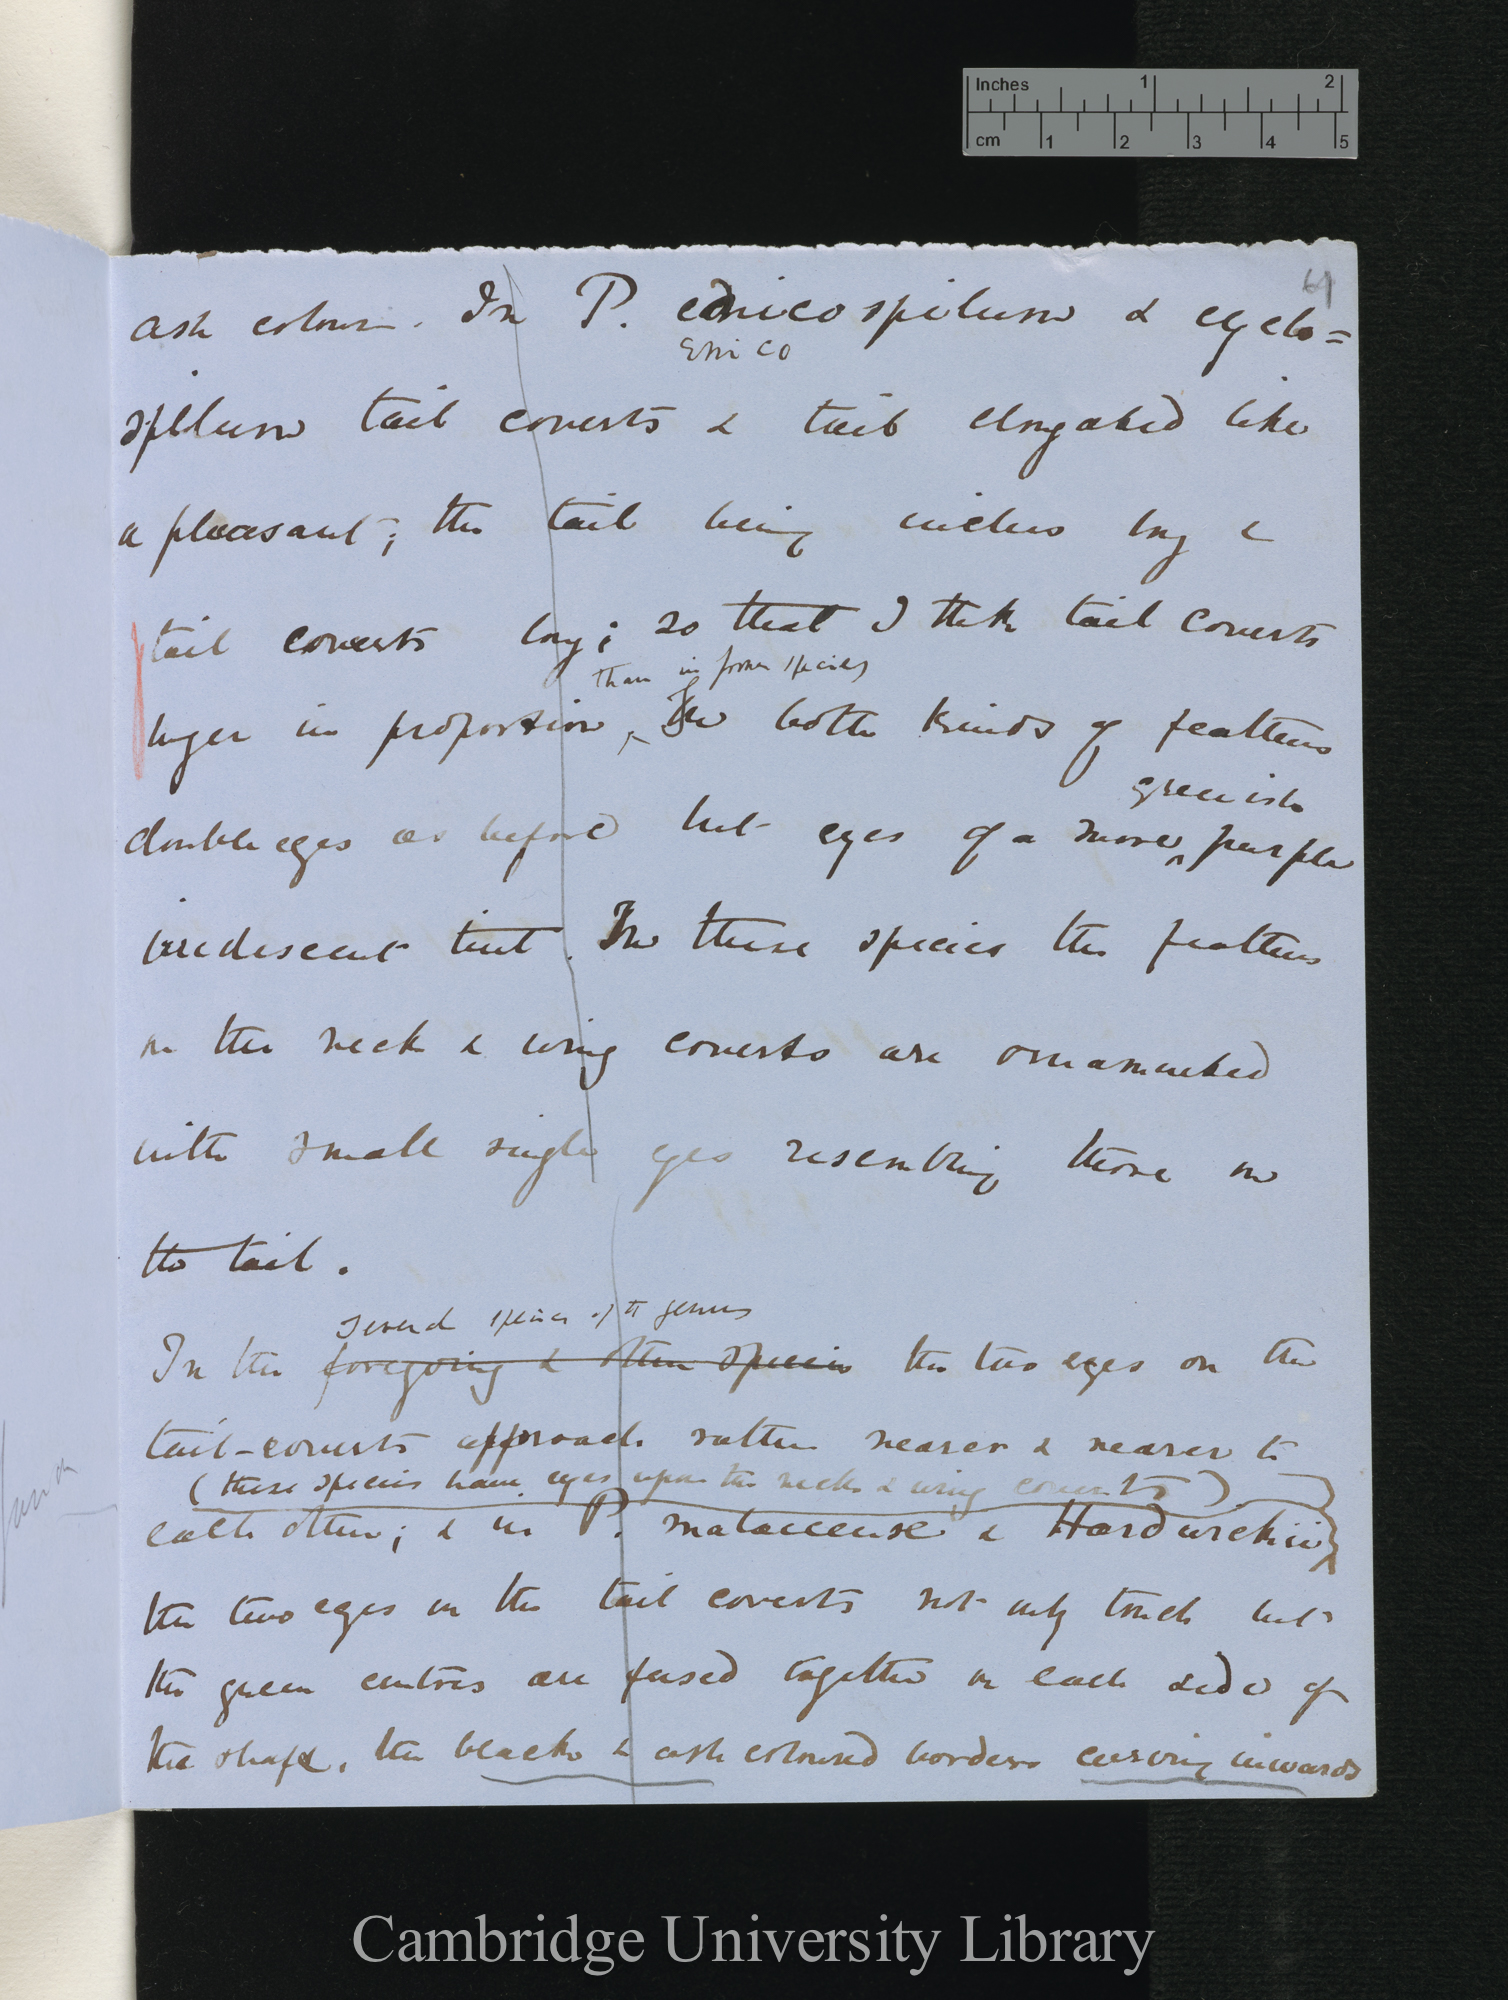 Inches 1 2
cm 1 2 3 4 5
61
ash colour. In P. enicospilum & cyclo=
Enico
spilum tail coverts & tail elongated like
a pleasant; the tail being inches long &
tail coverts long; so that I think tail coverts
than in former species
longer in proportion, The both kinds of feathers
greenish
double eyes as before but eyes of a more purple
iredescent tint. In these species the feathers
on the neck & wing coverts are ornamented
with small single eyes resembling those on
the tail.
several species of the genus
In the foregoing & other species the two eyes on the
tail-coverts approach rather nearer & nearer to
(these species have eyes upon the neck & wing coverts)
each other; & in P. malaccense & Hardwickii
the two eyes on the tail coverts not only touch but
the green centres are fused together on each side of
the shaft, the black & ash coloured borders curving inwards
Cambridge University Library